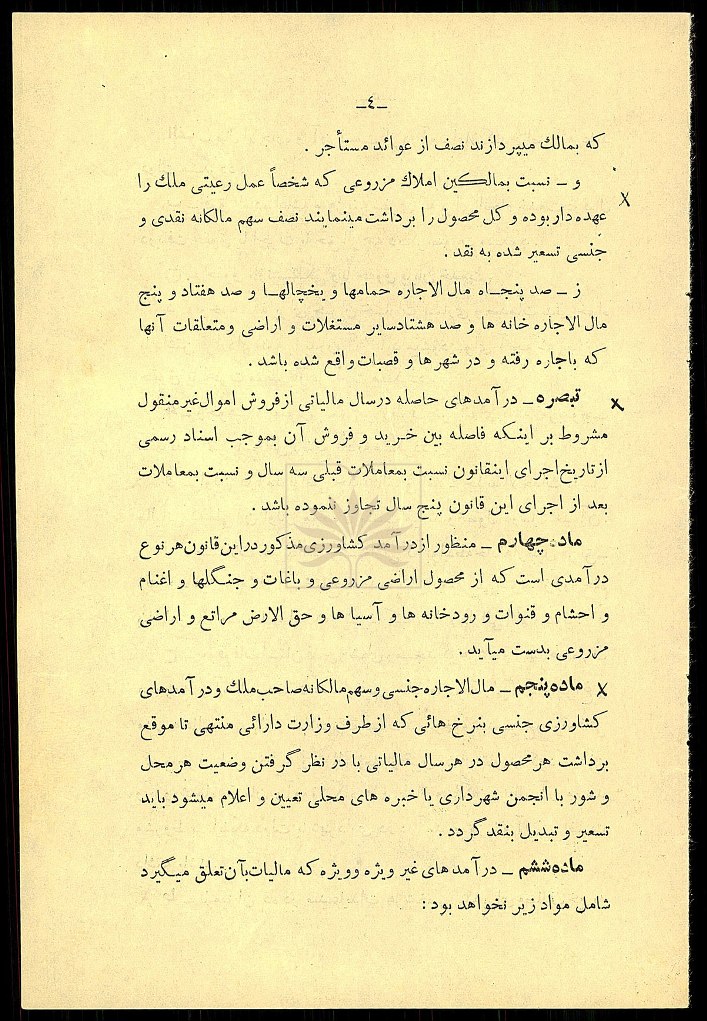 ـ٤ـ
که بمالك میپردازند نصف از عوائد مستأجر .
و ـ نسبت بمالکین املاك مزروعی که شخصاً عمل رعیتی ملك را
عهده دار بوده و کل محصول را برداشت مینمایند نصف سهم مالکانه نقدی و
جنسی تسعیر شده به نقد .
ز ـ صد پنجـاه مال الاجاره حمامها و یخچالهـا و صد هفتاد و پنج
مال الاجاره خانه ها و صد هشتادسایر مستغلات و اراضی ومتعلقات آنها
که باجاره رفته و در شهرها و قصبات واقع شده باشد .
تبصره ـ درآمدهای حاصله درسال مالیاتی ازفروش اموال غیرمنقول
مشروط بر اینکه فاصله بین خرید و فروش آن بموجب اسناد رسمی
ازتاریخ اجرای اینقانون نسبت بمعاملات قبلی سه سال و نسبت بمعاملات
بعد از اجرای این قانون پنج سال تجاوز ننموده باشد .
ماده چهارم ـ منظور ازدرآمد کشاورزی مذکور دراین قانون هر نوع
درآمدی است که از محصول اراضی مزروعی و باغات و جنگلها و اغنام
و احشام و قنوات و رودخانه ها و آسیا ها و حق الارض مراتع و اراضی
مزروعی بدست میآید .
ماده پنجم ـ مال الاجاره جنسی و سهم مالکانه صاحب ملك ودرآمدهای
کشاورزی جنسی بنرخ هائی که ازطرف وزارت دارائی منتهی تا موقع
برداشت هر محصول در هرسال مالیاتی با در نظر گرفتن وضعیت هرمحل
و شور با انجمن شهرداری یا خبره های محلی تعیین و اعلام میشود باید
تسعیر و تبدیل بنقد گردد .
ماده ششم ـ درآمدهای غیر ویژه وویژه که مالیات بآن تعلق میگیرد
شامل مواد زیر نخواهد بود :